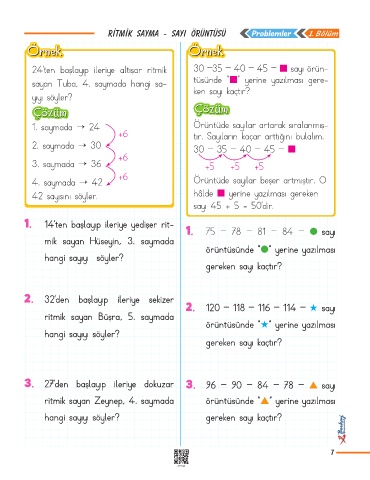 RİTMİK SAYMA - SAYI ÖRÜNTÜSÜ
Problemler
1. Bölüm
Örnek
24'ten başlayıp ileriye altışar ritmik
sayan Tuba, 4. saymada hangi sa-
yıyı söyler?
Çözüm
1. saymada → 24
+6
2. saymada → 30
+6
3. saymada → 36
+6
4. saymada → 42
42 sayısını söyler.
1. 14'ten başlayıp ileriye yedişer rit-
mik sayan Hüseyin, 3. saymada
hangi sayıyı söyler?
2. 32'den başlayıp ileriye sekizer
ritmik sayan Büşra, 5. saymada
hangi sayıyı söyler?
3. 27'den başlayıp ileriye dokuzar
ritmik sayan Zeynep, 4. saymada
hangi sayıyı söyler?
Örnek
30 - 35 - 40 - 45 - ■ sayı örün-
tüsünde "■" yerine yazılması gere-
ken sayı kaçtır?
Çözüm
Örüntüde sayılar artarak sıralanmış-
tır. Sayıların kaçar arttığını bulalım.
30 - 35 - 40 - 45 - ■
+5 +5 +5
Örüntüde sayılar beşer artmıştır. O
hâlde ■ yerine yazılması gereken
sayı 45 + 5 = 50'dir.
1. 75 - 78 - 81 - 84 - ● sayı
örüntüsünde "●" yerine yazılması
gereken sayı kaçtır?
2. 120 - 118 - 116 - 114 - ★ sayı
örüntüsünde "★" yerine yazılması
gereken sayı kaçtır?
3. 96 - 90 - 84 - 78 - ▲ sayı
örüntüsünde "▲" yerine yazılması
gereken sayı kaçtır?
7